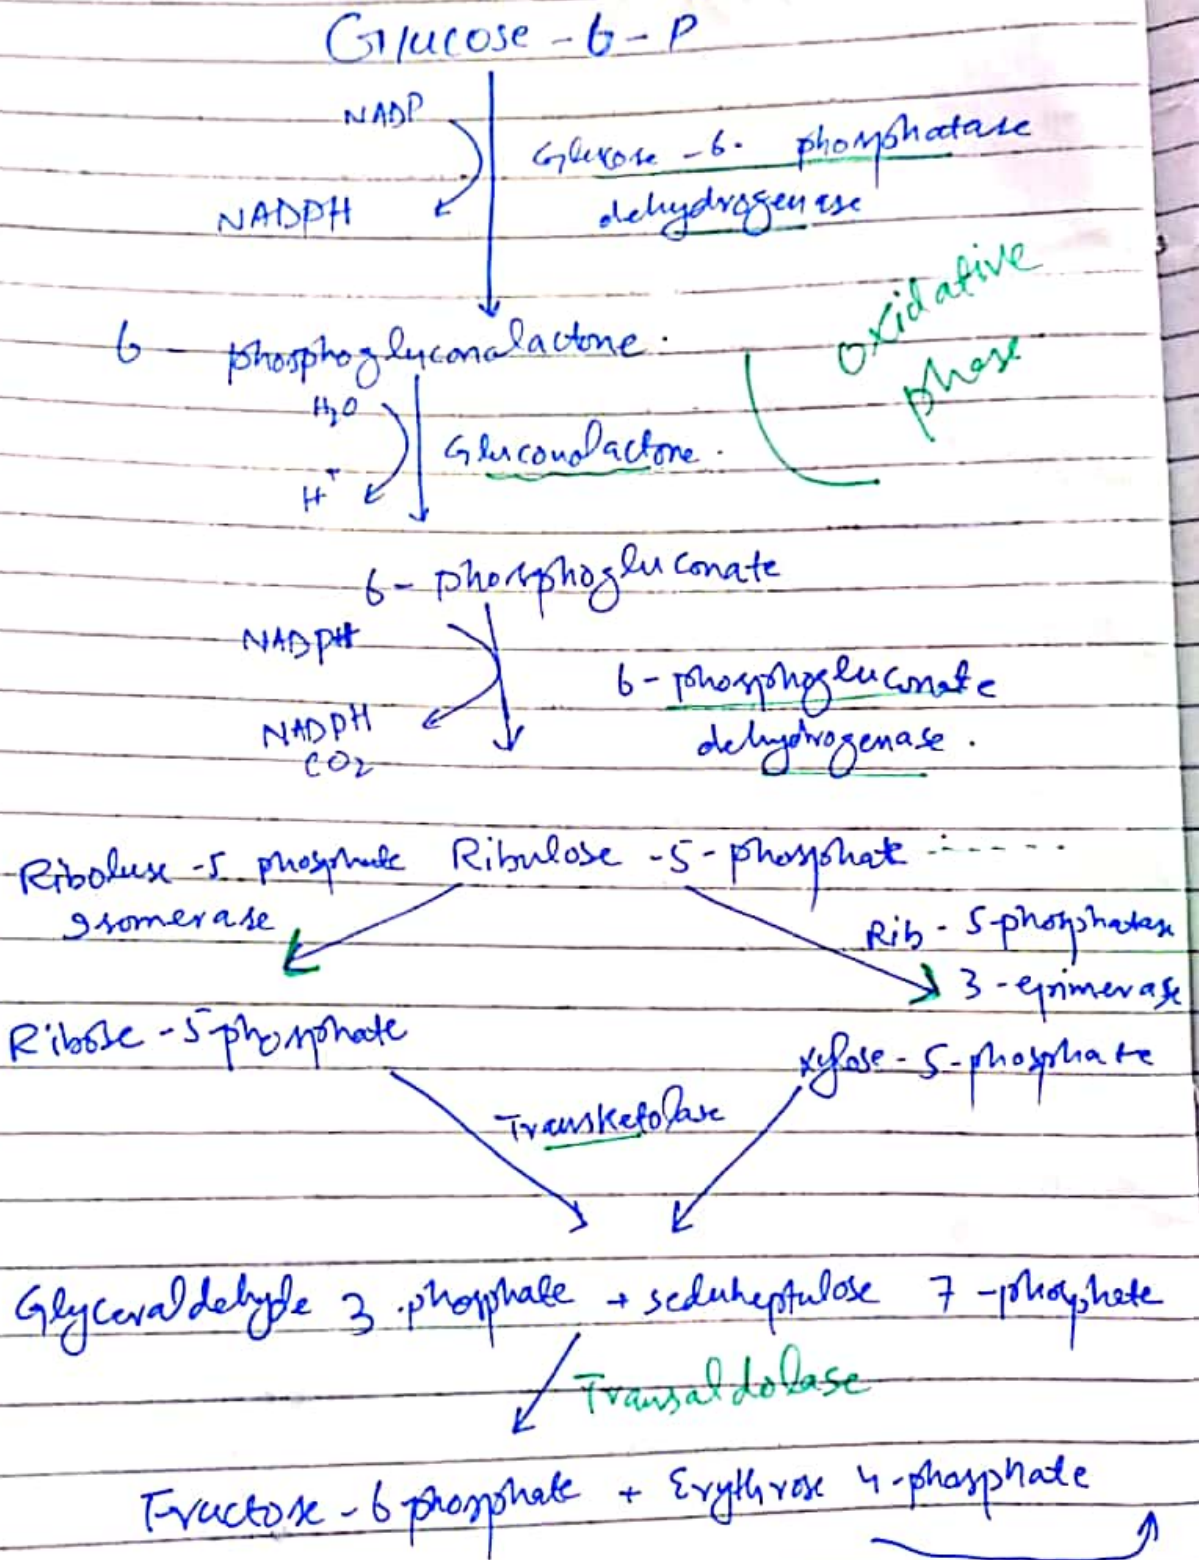 Glucose - 6 - P
NADP
Glucose - 6 - phosphatase
dehydrogenase
NADPH
oxidative
phase
6 - phosphoglyconalactone.
H2O
Gluconolactone.
H+
6 - phosphogluconate
NADPH
6 - phosphogluconate
NADPH
dehydrogenase.
CO2
Riboluse - 5 phosphate Ribulose - 5 - phosphate
isomerase
Rib - 5 - phosphatase
3 - epimerase
Ribose - 5 phosphate
xylose - 5 - phosphate
Transketolase
Glyceraldehyde 3 - phosphate + seduheptulose 7 - phosphate
Transaldolase
Fructose - 6 phosphate + Erythrose 4 - phosphate